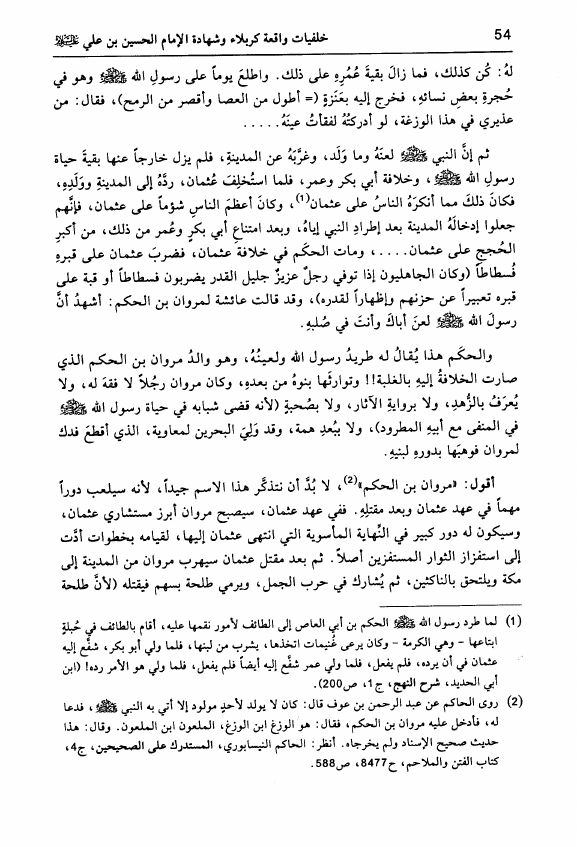 54
خلفيات واقعة كربلاء وشهادة الإمام الحسين بن علي
لهُ: كُن كذلك، فما زالَ بقيةَ عُمُرِهِ على ذلك. واطلعَ يوماً على رسولِ الله ﷺ وهو في
حُجرةِ بعضِ نسائهِ، فخرج إليه بعَنَزةٍ (= أطول من العصا وأقصر من الرمح)، فقال: من
عذيري في هذا الوزغة، لو أدركتُهُ لفقأتُ عينَهُ.....
ثم إنَّ النبي ﷺ لعنَهُ وما وَلَد، وغرَّبَهُ عن المدينةِ، فلم يزل خارجاً عنها بقيةَ حياة
رسولِ الله ﷺ، وخلافة أبي بكر وعمر، فلما استُخلِفَ عُثمان، ردَّهُ إلى المدينةِ ووَلَدِه،
فكانَ ذلك مما أنكرَهُ الناسُ على عثمان(1)، وكانَ أعظمَ الناسِ شؤماً على عثمان، فإنَّهم
جعلوا إدخالَهُ المدينة بعد إطرادِ النبي إياهُ، وبعد امتناعِ أبي بكرٍ وعُمر من ذلك، من أكبرِ
الحُججِ على عثمان....، ومات الحكَم في خلافة عثمان، فضربَ عثمان على قبرهِ
فُسطاطاً (وكان الجاهليون إذا توفي رجلٌ عزيزٌ جليل القدر يضربون فسطاطاً أو قبة على
قبره تعبيراً عن حزنهم وإظهاراً لقدره)، وقد قالت عائشة لمروان بن الحكم: أشهدُ أنَّ
رسولَ الله ﷺ لعنَ أباكَ وأنتَ في صُلبِهِ.
والحكَم هذا يُقالُ له طريدُ رسول الله ولعينُهُ، وهو والدُ مروان بن الحكم الذي
صارت الخلافةُ إليهِ بالغلبة!! وتوارثَها بنوهُ من بعدهِ، وكان مروان رجُلاً لا فقهَ له، ولا
يُعرَفُ بالزُّهدِ، ولا بروايةِ الآثار، ولا بصُحبةٍ (لأنه قضى شبابه في حياة رسول الله ﷺ
في المنفى مع أبيهِ المطرود)، ولا ببُعدِ همة، وقد وَلِيَ البحرين لمعاوية، الذي أقطعَ فدك
لمروان فوهبَها بدورهِ لبنيهِ.
أقول: «مروان بن الحكم»(2)، لا بُدَّ أن نتذكَّر هذا الاسم جيداً، لأنه سيلعب دوراً
مهماً في عهد عثمان وبعد مقتلِهِ. ففي عهد عثمان، سيصبح مروان أبرز مستشاري عثمان،
وسيكون له دور كبير في النِّهاية المأسوية التي انتهى عثمان إليها، لقيامه بخطوات أدَّت
إلى استفزاز الثوار المستفزين أصلاً. ثم بعد مقتل عثمان سيهرب مروان من المدينة إلى
مكة ويلتحق بالناكثين، ثم يُشارك في حرب الجمل، ويرمي طلحة بسهم فيقتله (لأنَّ طلحة
(1) لما طرد رسول الله ﷺ الحكم بن أبي العاص إلى الطائف لأمور نقمها عليه، أقام بالطائف في حُبلةٍ
ابتاعها - وهي الكرمة - وكان يرعى غُنيمات اتخذها، يشرب من لبنها، فلما ولي أبو بكر، شفَّع إليه
عثمان في أن يرده، فلم يفعل، فلما ولي عمر شفَّع إليه أيضاً فلم يفعل، فلما ولي هو الأمر رده! (ابن
أبي الحديد، شرح النهج، ج1، ص200).
(2) روى الحاكم عن عبد الرحمن بن عوف قال: كان لا يولد لأحدٍ مولود إلا أتي به النبي ﷺ، فدعا
له، فأدخل عليه مروان بن الحكم، فقال: هو الوزغ ابن الوزغ، الملعون ابن الملعون. وقال: هذا
حديث صحيح الإسناد ولم يخرجاه. أنظر: الحاكم النيسابوري، المستدرك على الصحيحين، ج4،
كتاب الفتن والملاحم، ح8477، ص588.